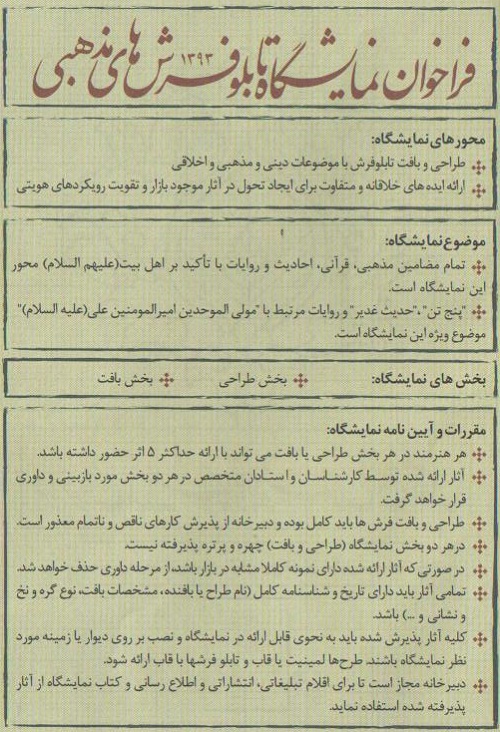 فراخوان نمایشگاه تابلو فرش های مذهبی ۱۳۹۳
محورهای نمایشگاه:
طراحی و بافت تابلوفرش با موضوعات دینی و مذهبی و اخلاقی
ارائه ایده های خلاقانه و متفاوت برای ایجاد تحول در آثار موجود بازار و تقویت رویکردهای هویتی
موضوع نمایشگاه:
تمام مضامین مذهبی، قرآنی، احادیث و روایات با تأکید بر اهل بیت(علیهم السلام) محور
این نمایشگاه است.
"پنج تن"، "حدیث غدیر" و روایات مرتبط با "مولی الموحدین امیرالمومنین علی(علیه السلام)"
موضوع ویژه این نمایشگاه است.
بخش های نمایشگاه: بخش طراحی بخش بافت
مقررات و آیین نامه نمایشگاه:
هر هنرمند در هر بخش طراحی یا بافت می تواند با ارائه حداکثر ۵ اثر حضور داشته باشد.
آثار ارائه شده توسط کارشناسان و استادان متخصص در هر دو بخش مورد بازبینی و داوری
قرار خواهد گرفت.
طراحی و بافت فرش ها باید کامل بوده و دبیرخانه از پذیرش کارهای ناقص و ناتمام معذور است.
در هر دو بخش نمایشگاه (طراحی و بافت) چهره و پرتره پذیرفته نیست.
در صورتی که آثار ارائه شده دارای نمونه کاملا مشابه در بازار باشد، از مرحله داوری حذف خواهد شد.
تمامی آثار باید دارای تاریخ و شناسنامه کامل (نام طراح یا بافنده، مشخصات بافت، نوع گره و نخ
و نشانی و ...) باشد.
کلیه آثار پذیرش شده باید به نحوی قابل ارائه در نمایشگاه و نصب بر روی دیوار یا زمینه مورد
نظر نمایشگاه باشند. طرح‌ها لمینیت یا قاب و تابلو فرشها با قاب ارائه شود.
دبیرخانه مجاز است تا برای اقلام تبلیغاتی، انتشاراتی و اطلاع رسانی و کتاب نمایشگاه از آثار
پذیرفته شده استفاده نماید.